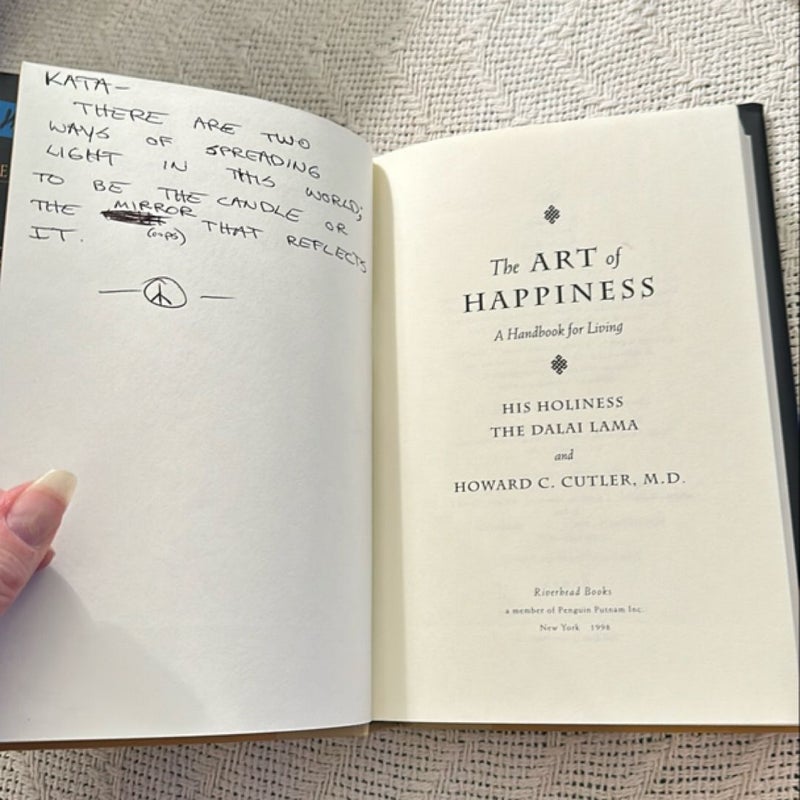 KATA-
THERE ARE TWO
WAYS OF SPREADING
LIGHT IN THIS WORLD;
TO BE THE CANDLE OR
THE MIRROR THAT REFLECTS
IT. (oops)
The ART of
HAPPINESS
A Handbook for Living
HIS HOLINESS
THE DALAI LAMA
and
HOWARD C. CUTLER, M.D.
Riverhead Books
a member of Penguin Putnam Inc.
New York 1998